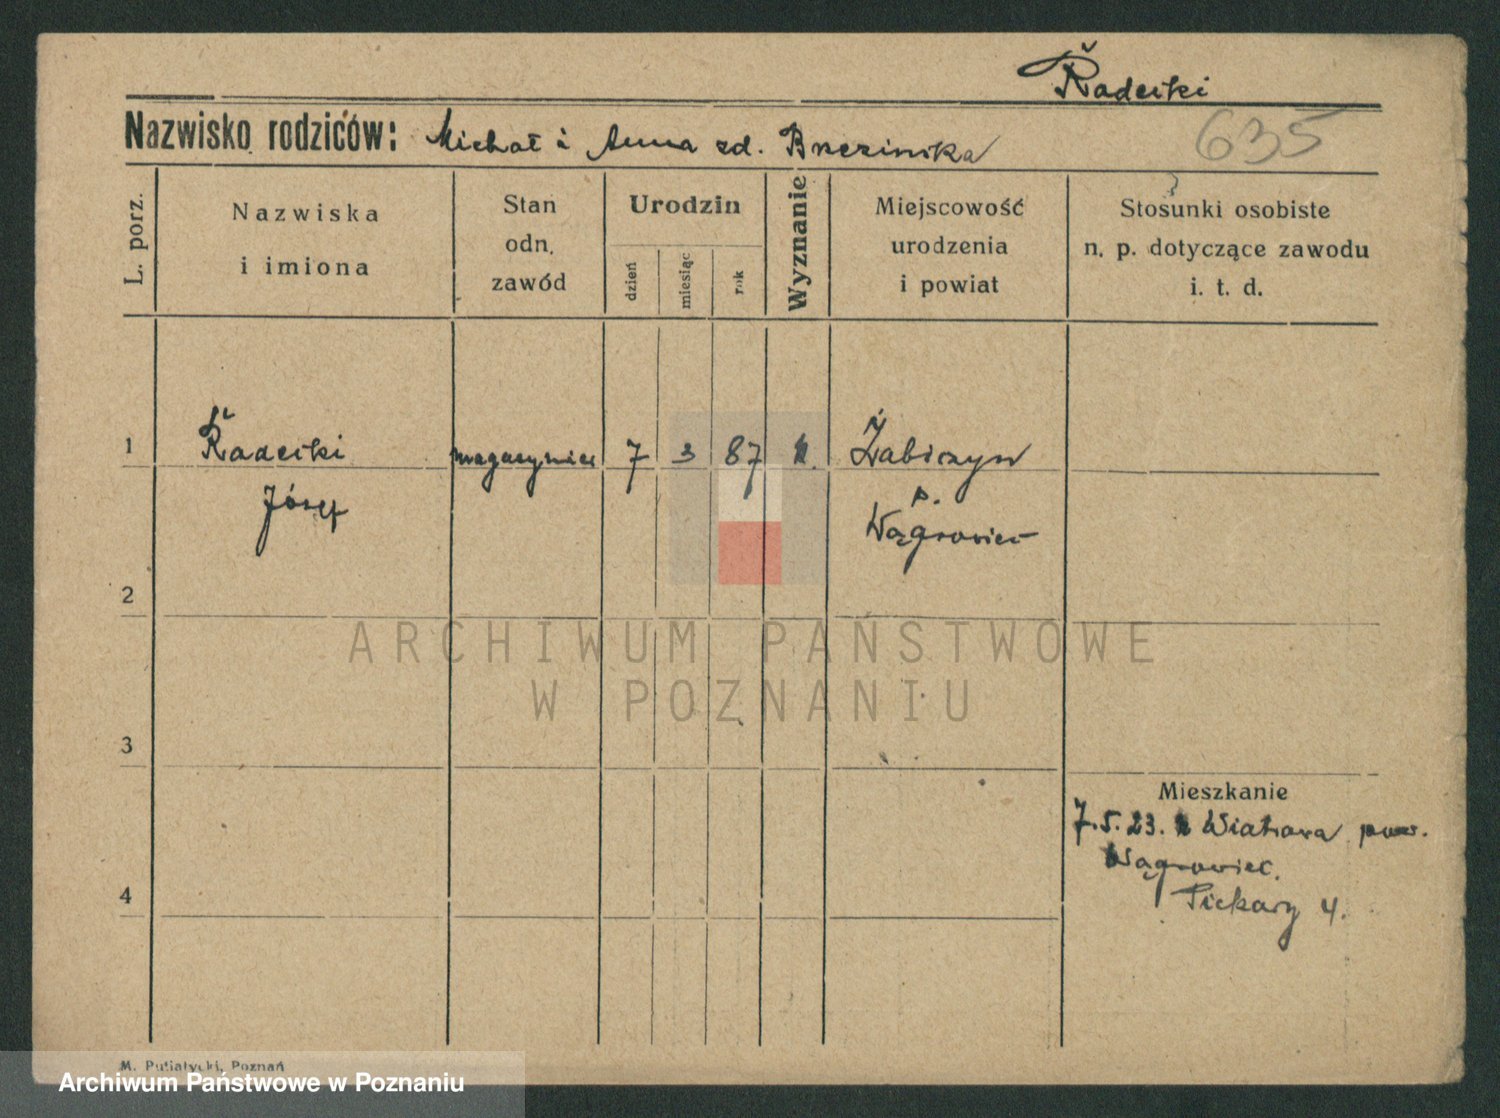 Radecki
Nazwisko rodziców: Michał i Anna zd. Brzezińska
635
L. porz.
Nazwiska
i imiona
Stan
odn.
zawód
Urodzin
dzień
miesiąc
rok
Wyznanie
Miejscowość
urodzenia
i powiat
Stosunki osobiste
n. p. dotyczące zawodu
i. t. d.
1 Radecki magazynier 7 3 87 k. Żabiczyn
Józef
p.
Wągrowiec
2
ARCHIWUM PAŃSTWOWE
W POZNANIU
3
Mieszkanie
7.5.23. Wiatrowa pow.
Wągrowiec.
4
Piekary 4.
M. Putiatycki, Poznań
Archiwum Państwowe w Poznaniu